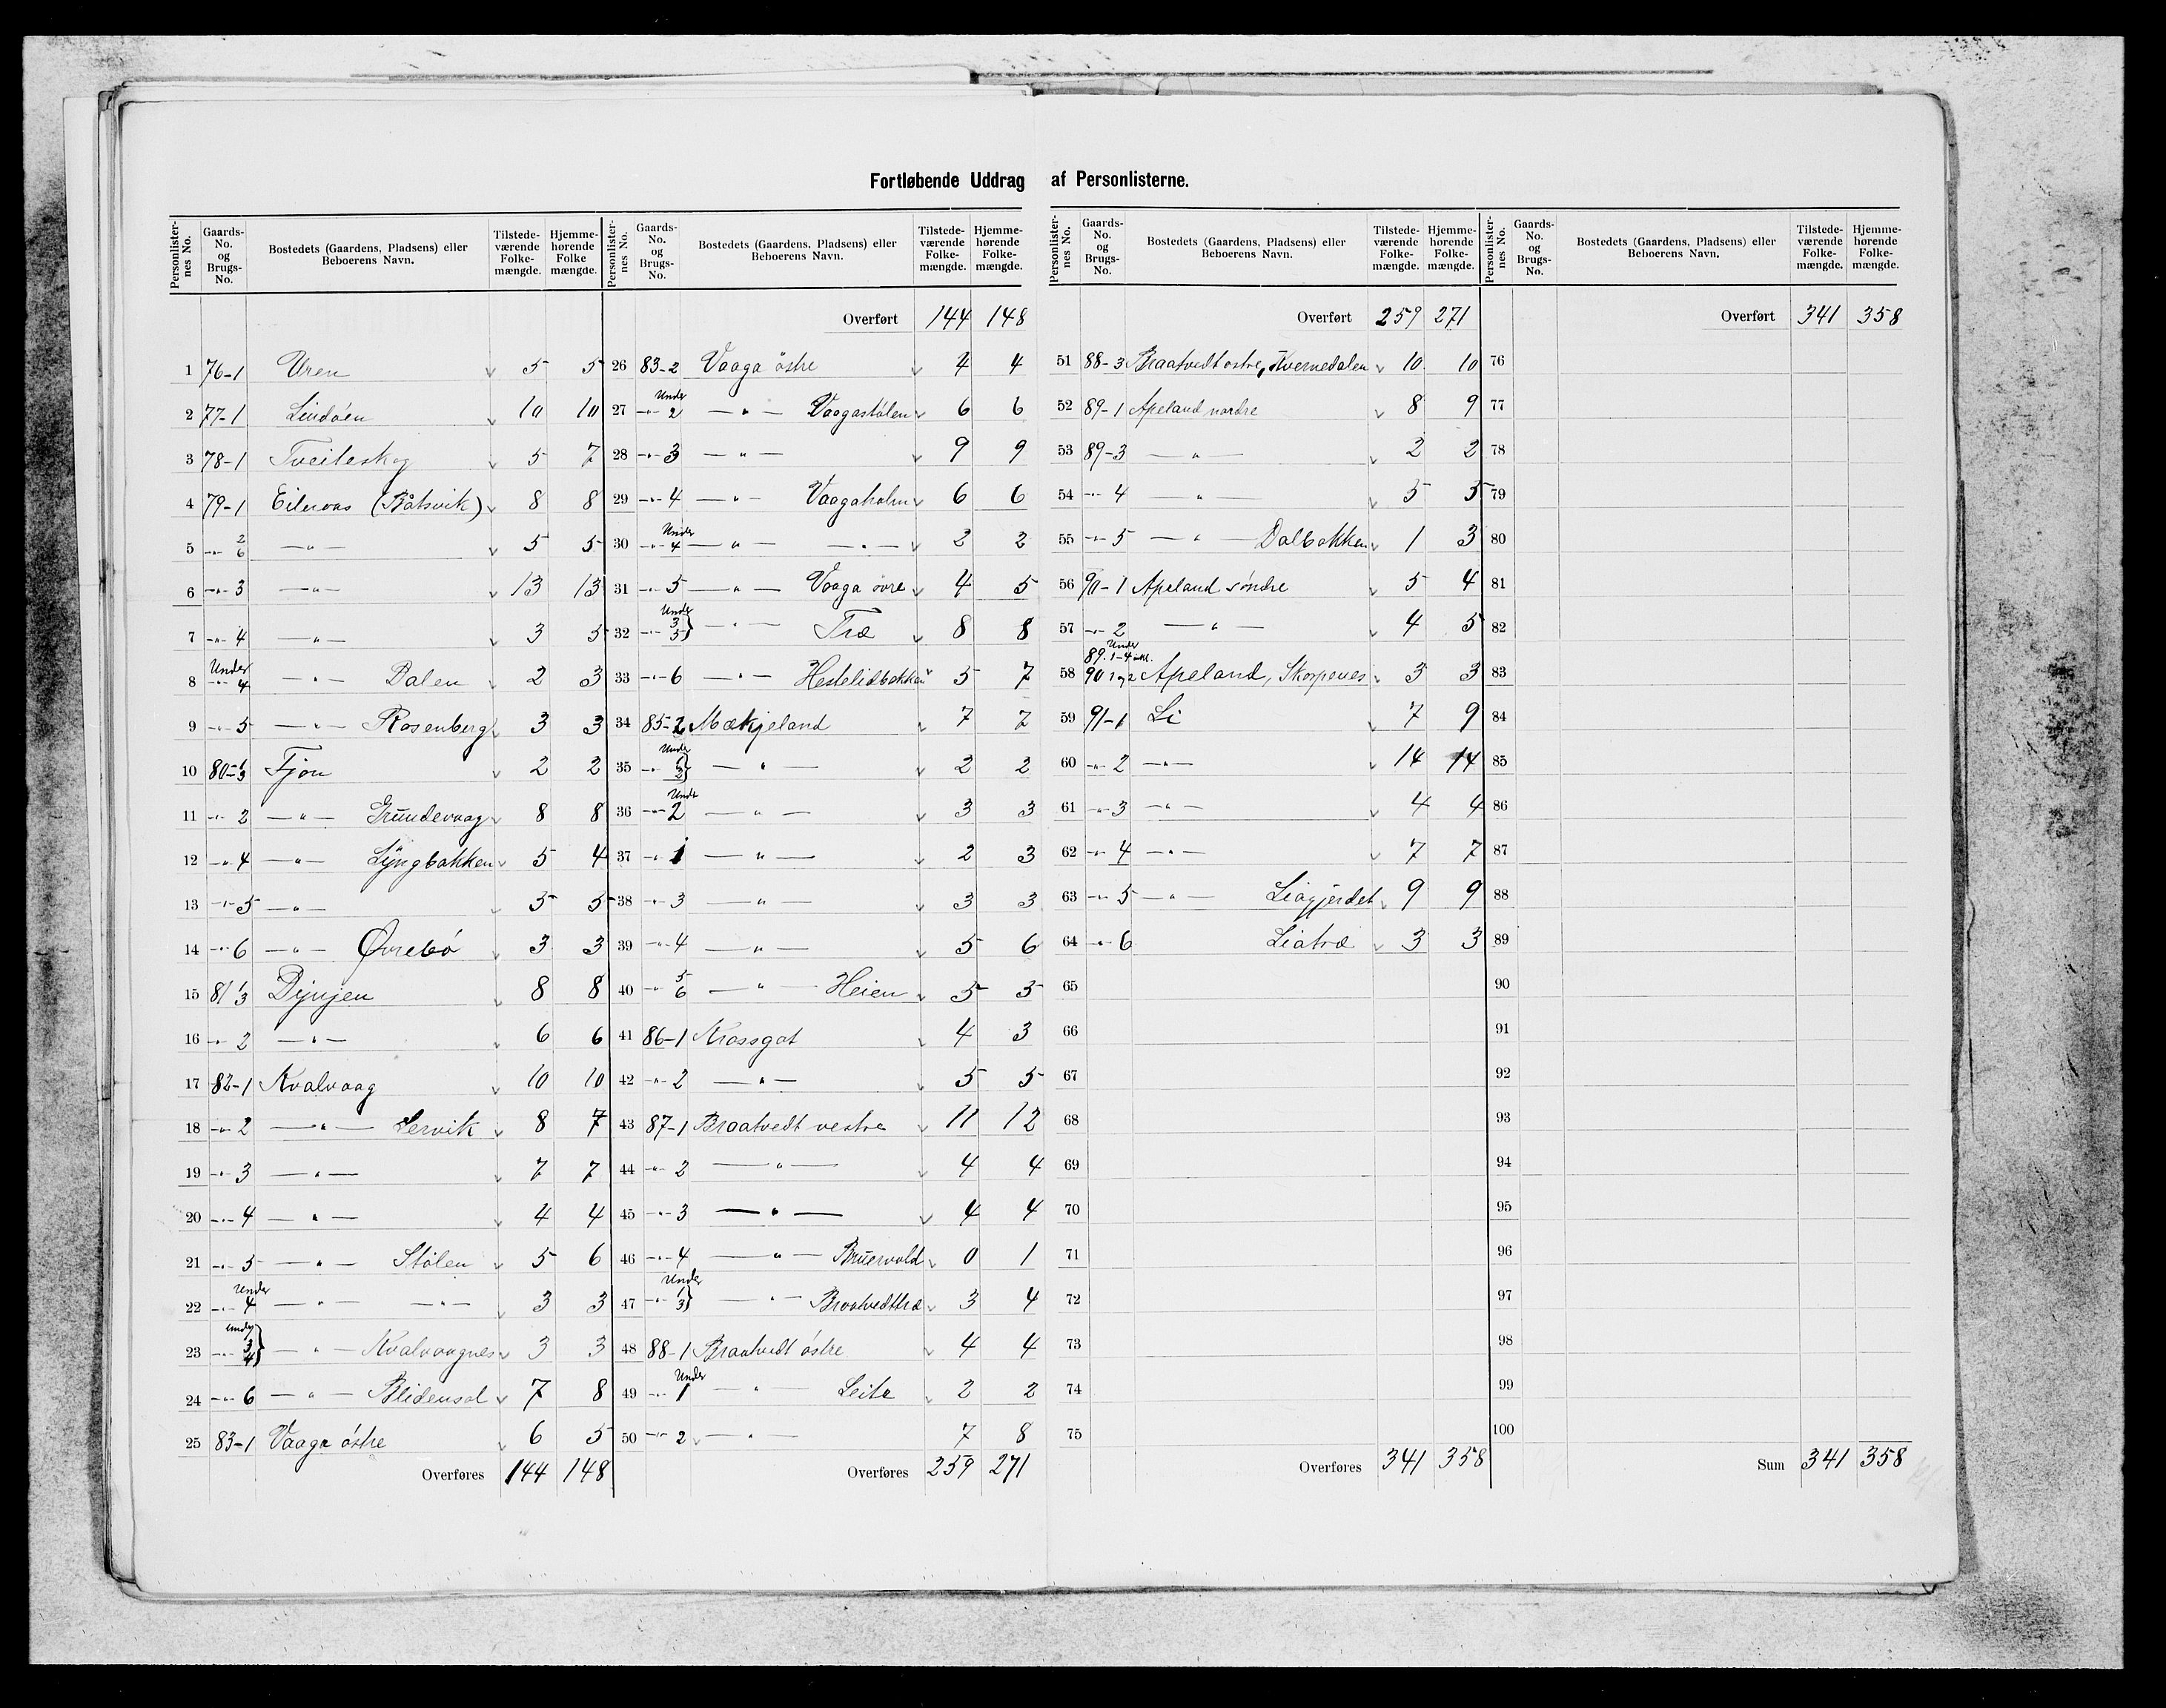 Fortløbende Uddrag af Personlisterne.
Personlister-nes No. | Gaards-No. og Brugs-No. | Bostedets (Gaardens, Pladsens) eller Beboerens Navn. | Tilstede-værende Folke-mængde. | Hjemme-hørende Folke mængde.
1 76-1 Uren 5 5
2 77-1 Lindøen 10 10
3 78-1 Tveiteskog 5 7
4 79-1 Eilevaas (Båtsvik) 8 8
5 -"- 2 6 -"- 5 5
6 -"- 3 -"- 13 13
7 -"- 4 -"- 3 5
8 Under -"- 4 -"- Dalen 2 3
9 -"- 5 -"- Rosenberg 3 3
10 80-1 3 Tjon 2 2
11 -"- 2 -"- Grundevaag 8 8
12 -"- 4 -"- Lyngbakken 5 4
13 -"- 5 -"- 5 5
14 -"- 6 -"- Øvrebø 3 3
15 81 1 3 Dynjen 8 8
16 -"- 2 -"- 6 6
17 82-1 Kvalvaag 10 10
18 -"- 2 -"- Lervik 8 7
19 -"- 3 -"- 7 7
20 -"- 4 -"- 4 4
21 -"- 5 -"- Stølen 5 6
22 Under -"- 4 -"- -"- 3 3
23 Under -"- 3 4} -"- Kvalvaagnes 3 3
24 -"- 6 -"- Blidensol 7 8
25 83-1 Vaaga østre 6 5
Overføres 144 148
Personlister-nes No. | Gaards-No. og Brugs-No. | Bostedets (Gaardens, Pladsens) eller Beboerens Navn. | Tilstede-værende Folke-mængde. | Hjemme-hørende Folke-mængde.
Overført 144 148
26 83-2 Vaaga østre 4 4
27 Under -"- 2 -"- Vaagastølen 6 6
28 -"- 3 -"- 9 9
29 -"- 4 -"- Vaagaholm 6 6
30 Under -"- 4 -"- -"- 2 2
31 -"- 5 -"- Vaaga øvre 4 5
32 Under -"- 3 5} -"- Træ 8 8
33 -"- 6 -"- Hestelidbakken 5 7
34 85-2 Mækjeland 7 7
35 Under -"- 1 2} -"- 2 2
36 Under -"- 2 -"- 3 3
37 -"- 1 -"- 2 3
38 -"- 3 -"- 3 3
39 -"- 4 -"- 5 6
40 -"- 5 6 -"- Heien 5 5
41 86-1 Krossgat 4 3
42 -"- 2 -"- 5 5
43 87-1 Braatvedt vestre 11 12
44 -"- 2 -"- 4 4
45 -"- 3 -"- 4 4
46 -"- 4 -"- Bruervold 0 1
47 Under -"- 1 3} -"- Braatvedttræ 3 4
48 88-1 Braatvedt østre 4 4
49 Under -"- 1 -"- Leite 2 2
50 -"- 2 -"- 7 8
Overføres 259 271
Personlister-nes No. | Gaards-No. og Brugs-No. | Bostedets (Gaardens, Pladsens) eller Beboerens Navn. | Tilstede-værende Folke-mængde. | Hjemme-hørende Folke-mængde.
Overført 259 271
51 88-3 Braatvedt østre, Kvernedalen 10 10
52 89-1 Apeland nordre 8 9
53 89-3 -"- 2 2
54 -"- 4 -"- 5 5
55 -"- 5 -"- Dalbakken 1 3
56 90-1 Apeland søndre 5 4
57 -"- 2 -"- 4 5
58 Under 89. 1-4 inkl. 90 1 og 2 Apeland, Skorpenes 3 3
59 91-1 Li 7 9
60 -"- 2 -"- 14 14
61 -"- 3 -"- 4 4
62 -"- 4 -"- 7 7
63 -"- 5 -"- Liagjerdet 9 9
64 -"- 6 Liatræ 3 3
65
66
67
68
69
70
71
72
73
74
75
Overføres 341 358
Personlister-nes No. | Gaards-No. og Brugs-No. | Bostedets (Gaardens, Pladsens) eller Beboerens Navn. | Tilstede-værende Folke-mængde. | Hjemme-hørende Folke-mængde.
Overført 341 358
76
77
78
79
80
81
82
83
84
85
86
87
88
89
90
91
92
93
94
95
96
97
98
99
100
Sum 341 358